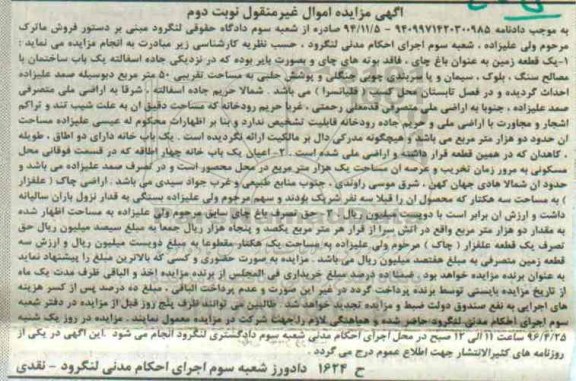 آگهی مزایده اموال غیرمنقول نوبت دوم
به موجب دادنامه ۹۴۰۹۹۷۱۴۲۰۳۰۰۹۸۵ – ۹۴/۱۱/۵ صادره از شعبه سوم دادگاه حقوقی لنگرود مبنی بر دستور فروش ماترک
مرحوم ولی علیزاده ، شعبه سوم اجرای احکام مدنی لنگرود ، حسب نظریه کارشناسی زیر مبادرت به انجام مزایده می نماید :
۱–یک قطعه زمین به عنوان باغ چای ، فاقد بوته های چای و بصورت بایر بوده که در نزدیکی جاده اسفالته یک باب ساختمان با
مصالح سنگ ، بلوک ، سیمان و با سربندی چوبی جنگلی و پوشش حلبی به مساحت تقریبی ۵۰ متر مربع دبوسیله صمد علیزاده
احداث گردیده و در فصل تابستان محل کسب ( قلیانسرا ) می باشد . شمالا حریم جاده اسفالته ، شرقا به اراضی ملی متصرفی
صمد علیزاده ، جنوبا به اراضی ملی متصرفی قدمعلی رحمتی ، غربا حریم رودخانه که مساحت دقیق ان به علت شیب تند و تراکم
اشجار و مجاورت با اراضی ملی و حریم جاده رودخانه قابلیت تشخیص ندارد و بنا بر اظهارات محکوم له عیسی علیزاده مساحت
ان حدود دو هزار متر مربع می باشد و هیچگونه مدرکی دال بر مالکیت ارائه نگردیده است . یک باب خانه دارای دو اطاق ، طویله
، کاهدان که در همین قطعه قرار داشته و اراضی ملی شده است . ۲– اعیان یک باب خانه چهار اطاقه که در قسمت فوقانی محل
مسکونی به مرور زمان تخریب و عرصه ان به مساحت یک هزار متر مربع در محل محصور است و در تصرف صمد علیزاده می باشد و
حدود ان شمالا هادی جهان کهن ، شرق موسی راوندی ، جنوب منابع طبیعی و غرب جواد سیدی می باشد . اراضی چاک ( علفزار
) به مساحت سه هکتار که محصول ان را قبلا سه نفر شریک بودند و سهم مرحوم ولی علیزاده بستگی به قدار نزول باران سالیانه
داشت و ارزش ان برابر است با دویست میلیون ریال . ۳– حق تصرف باغ چای سابق مرحوم ولی علیزاده به مساحت اظهار شده
به مقدار دو هزار متر مربع واقع در آتش سرا از قرار هر متر مربع یکصد و پنجاه هزار ریال جمعا به مبلغ سیصد میلیون ریال حق
تصرف یک قطعه علفزار ( چاک ) مرحوم ولی علیزاده به مساحت یک هکتار مقطوعا به مبلغ دویست میلیون ریال و ارزش سه
قطعه زمین متصرفی به مبلغ هفتصد میلیون ریال می باشد . مزایده به صورت حضوری و کسی که بالاترین مبلغ را پیشنهاد نماید
به عنوان برنده مزایده خواهد بود . ضمنا ده درصد مبلغ خریداری فی المجلس از برنده مزایده اخذ و الباقی ظرف مدت یک ماه
از تاریخ مزایده بایستی توسط برنده پرداخت گردد در غیر این صورت و عدم پرداخت الباقی ، مبلغ ده درصد پس از کسر هزینه
های اجرایی به نفع صندوق دولت ضبط و مزایده تجدید خواهد شد . طالبین می توانند ظرف پنج روز قبل از مزایده در دفتر شعبه
سوم اجرای احکام مدنی لنگرود حاضر شده و هماهنگی لازم را جهت شرکت در مزایده معمول نمایند . مزایده در روز یک شنبه
۹۶/۴/۲۵ ساعت ۱۱ الی ۱۲ صبح در محل اجرای احکام مدنی شعبه سوم دادگستری لنگرود انجام می شود . این آگهی در یکی از
روزنامه های کثیرالانتشار جهت اطلاع عموم درج می گردد .
ح ۱۶۲۴ دادورز شعبه سوم اجرای احکام مدنی لنگرود – نقدی